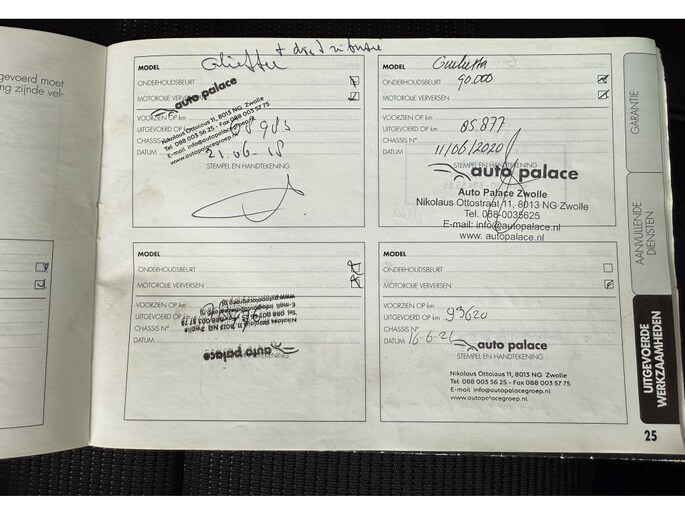 evoerd moet
ng zijnde vel-
MODEL
ONDERHOUDSBEURT
MOTOROLIE VERVERSEN
VOORZIEN OP km
UITGEVOERD OP km
CHASSIS N°
DATUM 21-06-18
STEMPEL EN HANDTEKENING
auto palace
Nikolaus Ottolaus 11, 8013 NG Zwolle
Tel 088 003 56 25 - Fax 088 003 57 75
E-mail info@autopalacegroep.nl
www.autopalacegroep.nl
MODEL Giulietta
ONDERHOUDSBEURT 90.000
MOTOROLIE VERVERSEN
VOORZIEN OP km
UITGEVOERD OP km 85.877
CHASSIS N°
DATUM 11/06/2020
STEMPEL EN HANDTEKENING
auto palace
Auto Palace Zwolle
Nikolaus Ottostraat 11, 8013 NG Zwolle
Tel. 088-0035625
E-mail: info@autopalace.nl
www. autopalace.nl
MODEL
ONDERHOUDSBEURT
MOTOROLIE VERVERSEN
VOORZIEN OP km
UITGEVOERD OP km
CHASSIS N°
DATUM
STEMPEL EN HANDTEKENING
auto palace
MODEL
ONDERHOUDSBEURT
MOTOROLIE VERVERSEN
VOORZIEN OP km
UITGEVOERD OP km 93620
CHASSIS N°
DATUM 16-6-21
auto palace
STEMPEL EN HANDTEKENING
Nikolaus Ottolaus 11, 8013 NG Zwolle
Tel. 088 003 56 25 - Fax 088 003 57 75
E-mail: info@autopalacegroep.nl
www.autopalacegroep.nl
GARANTIE
AANVULLENDE
DIENSTEN
UITGEVOERDE
WERKZAAMHEDEN
25